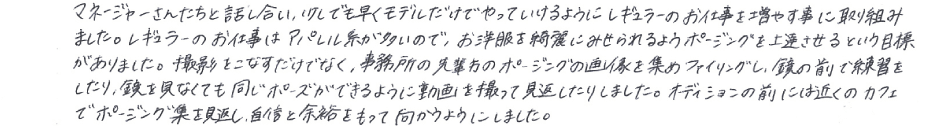 マネージャーさんたちと話し合い、少しでも早くモデルだけでやっていけるようにレギュラーのお仕事を増やす事に取り組み
ました。レギュラーのお仕事はアパレル系が多いので、お洋服を綺麗にみせられるようポージングを上達させるという目標
がありました。撮影をこなすだけでなく、事務所の先輩方のポージングの画像を集めファイリングし、鏡の前で練習を
したり、鏡を見なくても同じポーズができるように動画を撮って見返したりしました。オーディションの前には近くのカフェ
でポージング集を見返し、自信と余裕をもって向かうようにしました。